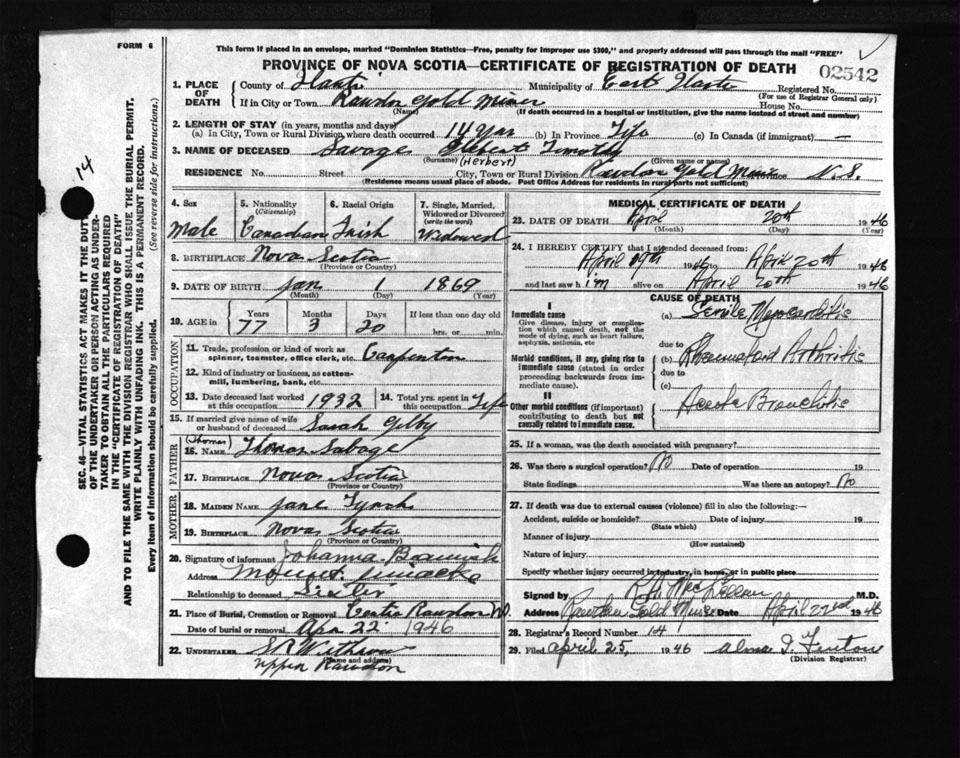 FORM 6
This form if placed in an envelope, marked "Dominion Statistics—Free, penalty for improper use $300," and properly addressed will pass through the mail "FREE"
PROVINCE OF NOVA SCOTIA—CERTIFICATE OF REGISTRATION OF DEATH
02542
14
SEC. 46—VITAL STATISTICS ACT MAKES IT THE DUTY
OF THE UNDERTAKER OR PERSON ACTING AS UNDER-
TAKER TO OBTAIN ALL THE PARTICULARS REQUIRED
IN THE "CERTIFICATE OF REGISTRATION OF DEATH"
AND TO FILE THE SAME WITH THE DIVISION REGISTRAR WHO SHALL ISSUE THE BURIAL PERMIT.
WRITE PLAINLY WITH UNFADING INK. THIS IS A PERMANENT RECORD.
Every item of information should be carefully supplied. (See reverse side for instructions.)
1. PLACE OF DEATH
County of Hants Municipality of East Hants Registered No.
(For use of Registrar General only)
If in City or Town Rawdon Gold Mines House No.
(Name) (If death occurred in a hospital or institution, give the name instead of street and number)
2. LENGTH OF STAY (in years, months and days)
(a) In City, Town or Rural Division, where death occurred 14 Yrs (b) In Province Life (c) In Canada (if immigrant) —
3. NAME OF DECEASED Savage Hebert Timothy
(Surname) (Herbert) (Given name or names)
RESIDENCE No. Street City, Town or Rural Division Rawdon Gold Mines Province N.S.
(Residence means usual place of abode. Post Office Address for residents in rural parts not sufficient)
4. Sex
Male
5. Nationality
(Citizenship)
Canadian
6. Racial Origin
Irish
7. Single, Married,
Widowed or Divorced
(write the word)
Widowed
8. BIRTHPLACE Nova Scotia
(Province or Country)
9. DATE OF BIRTH Jan 1 1869
(Month) (Day) (Year)
10. AGE in
Years Months Days If less than one day old
77 3 20 hrs. or min.
OCCUPATION
11. Trade, profession or kind of work as
spinner, teamster, office clerk, etc. Carpenter
12. Kind of industry or business, as cotton-
mill, lumbering, bank, etc.
13. Date deceased last worked
at this occupation 1932
14. Total yrs. spent in
this occupation Life
15. If married give name of wife
or husband of deceased Sarah Gilby
FATHER
(Thomas)
16. NAME Thomas Savage
17. BIRTHPLACE Nova Scotia
(Province or Country)
MOTHER
18. MAIDEN NAME Jane Lynch
19. BIRTHPLACE Nova Scotia
(Province or Country)
20. Signature of informant Johanna
Address Mount Uniacke
Relationship to deceased Sister
21. Place of Burial, Cremation or Removal Centre Rawdon
Date of burial or removal Apr 22 1946
22. UNDERTAKER
(Name and address)
Upper Rawdon
MEDICAL CERTIFICATE OF DEATH
23. DATE OF DEATH April 20th 1946
(Month) (Day) (Year)
24. I HEREBY CERTIFY that I attended deceased from:
April 19th 1946 to April 20th 1946
and last saw him alive on April 20th 1946
CAUSE OF DEATH
I
Immediate cause
Give disease, injury or complica-
tion which caused death, not the
mode of dying, such as heart failure,
asphyxia, asthenia, etc
(a) Senile Myocarditis
due to
Morbid conditions, if any, giving rise to
immediate cause (stated in order
proceeding backwards from im-
mediate cause).
(b) Rheumatoid Arthritis
due to
(c)
II
Other morbid conditions (if important)
contributing to death but not
causally related to immediate cause.
Acute Bronchitis
25. If a woman, was the death associated with pregnancy?
26. Was there a surgical operation? No Date of operation 19
State findings Was there an autopsy? No
27. If death was due to external causes (violence) fill in also the following:—
Accident, suicide or homicide? Date of injury 19
(State which)
Manner of injury
(How sustained)
Nature of injury
Specify whether injury occurred in industry, in home, or in public place
Signed by R.A. MacLellan M.D.
Address Rawdon Gold Mines Date April 22nd 1946
28. Registrar's Record Number 14
29. Filed April 25, 1946 Alma I. Fenton
(Division Registrar)